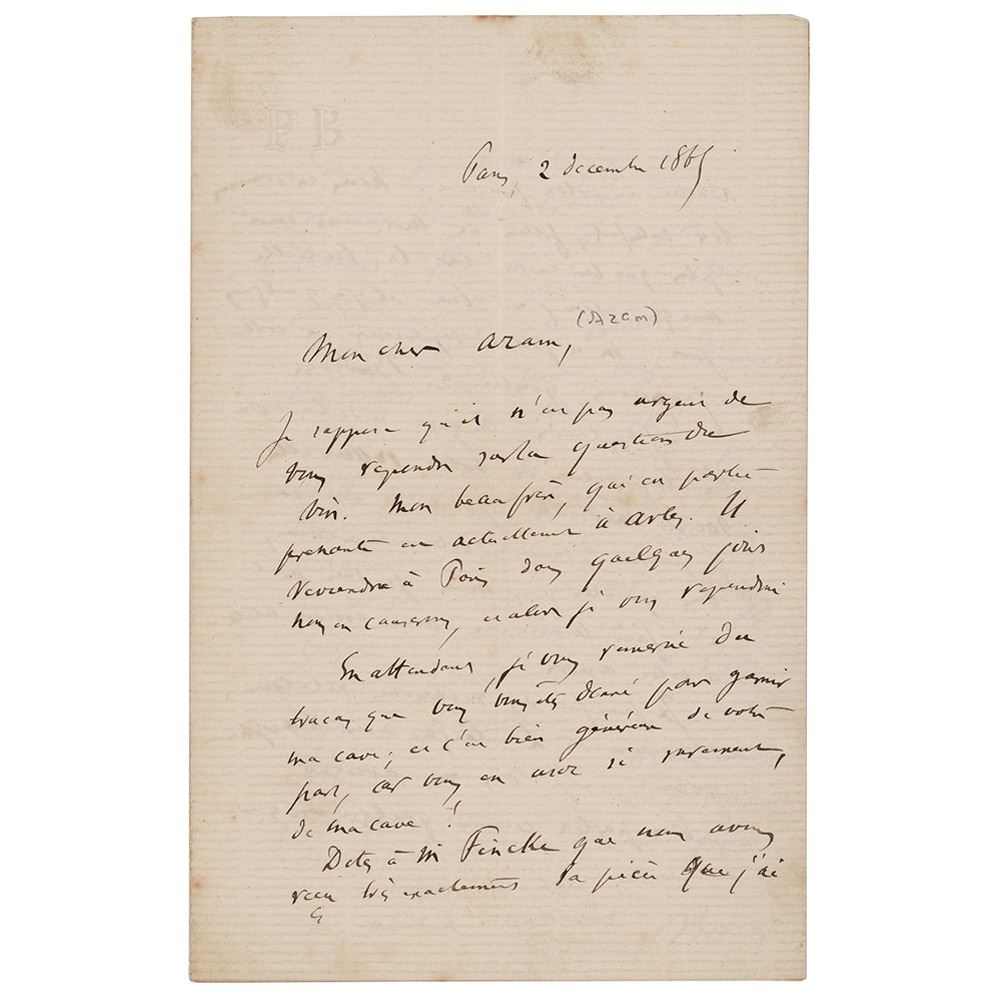 P B
Paris, 2 decembre 1865
(Azam)
Mon cher Azam,
Je suppose qu'il n'est pas urgent de
vous repondre sur la question du
vin. Mon beau frère, qui est partie
prenante est actuellement à Arles. Il
reviendra à Paris dans quelques jours
nous en causerons, et alors je vous repondrai
En attendant, je vous remercie du
tracas que vous vous êtes donné pour garnir
ma cave; et c'est bien généreux de votre
part, car vous en usez si rarement,
de ma cave !
Dites à Mr Fincke que nous avons
reçu très exactement la pièce que j'ai